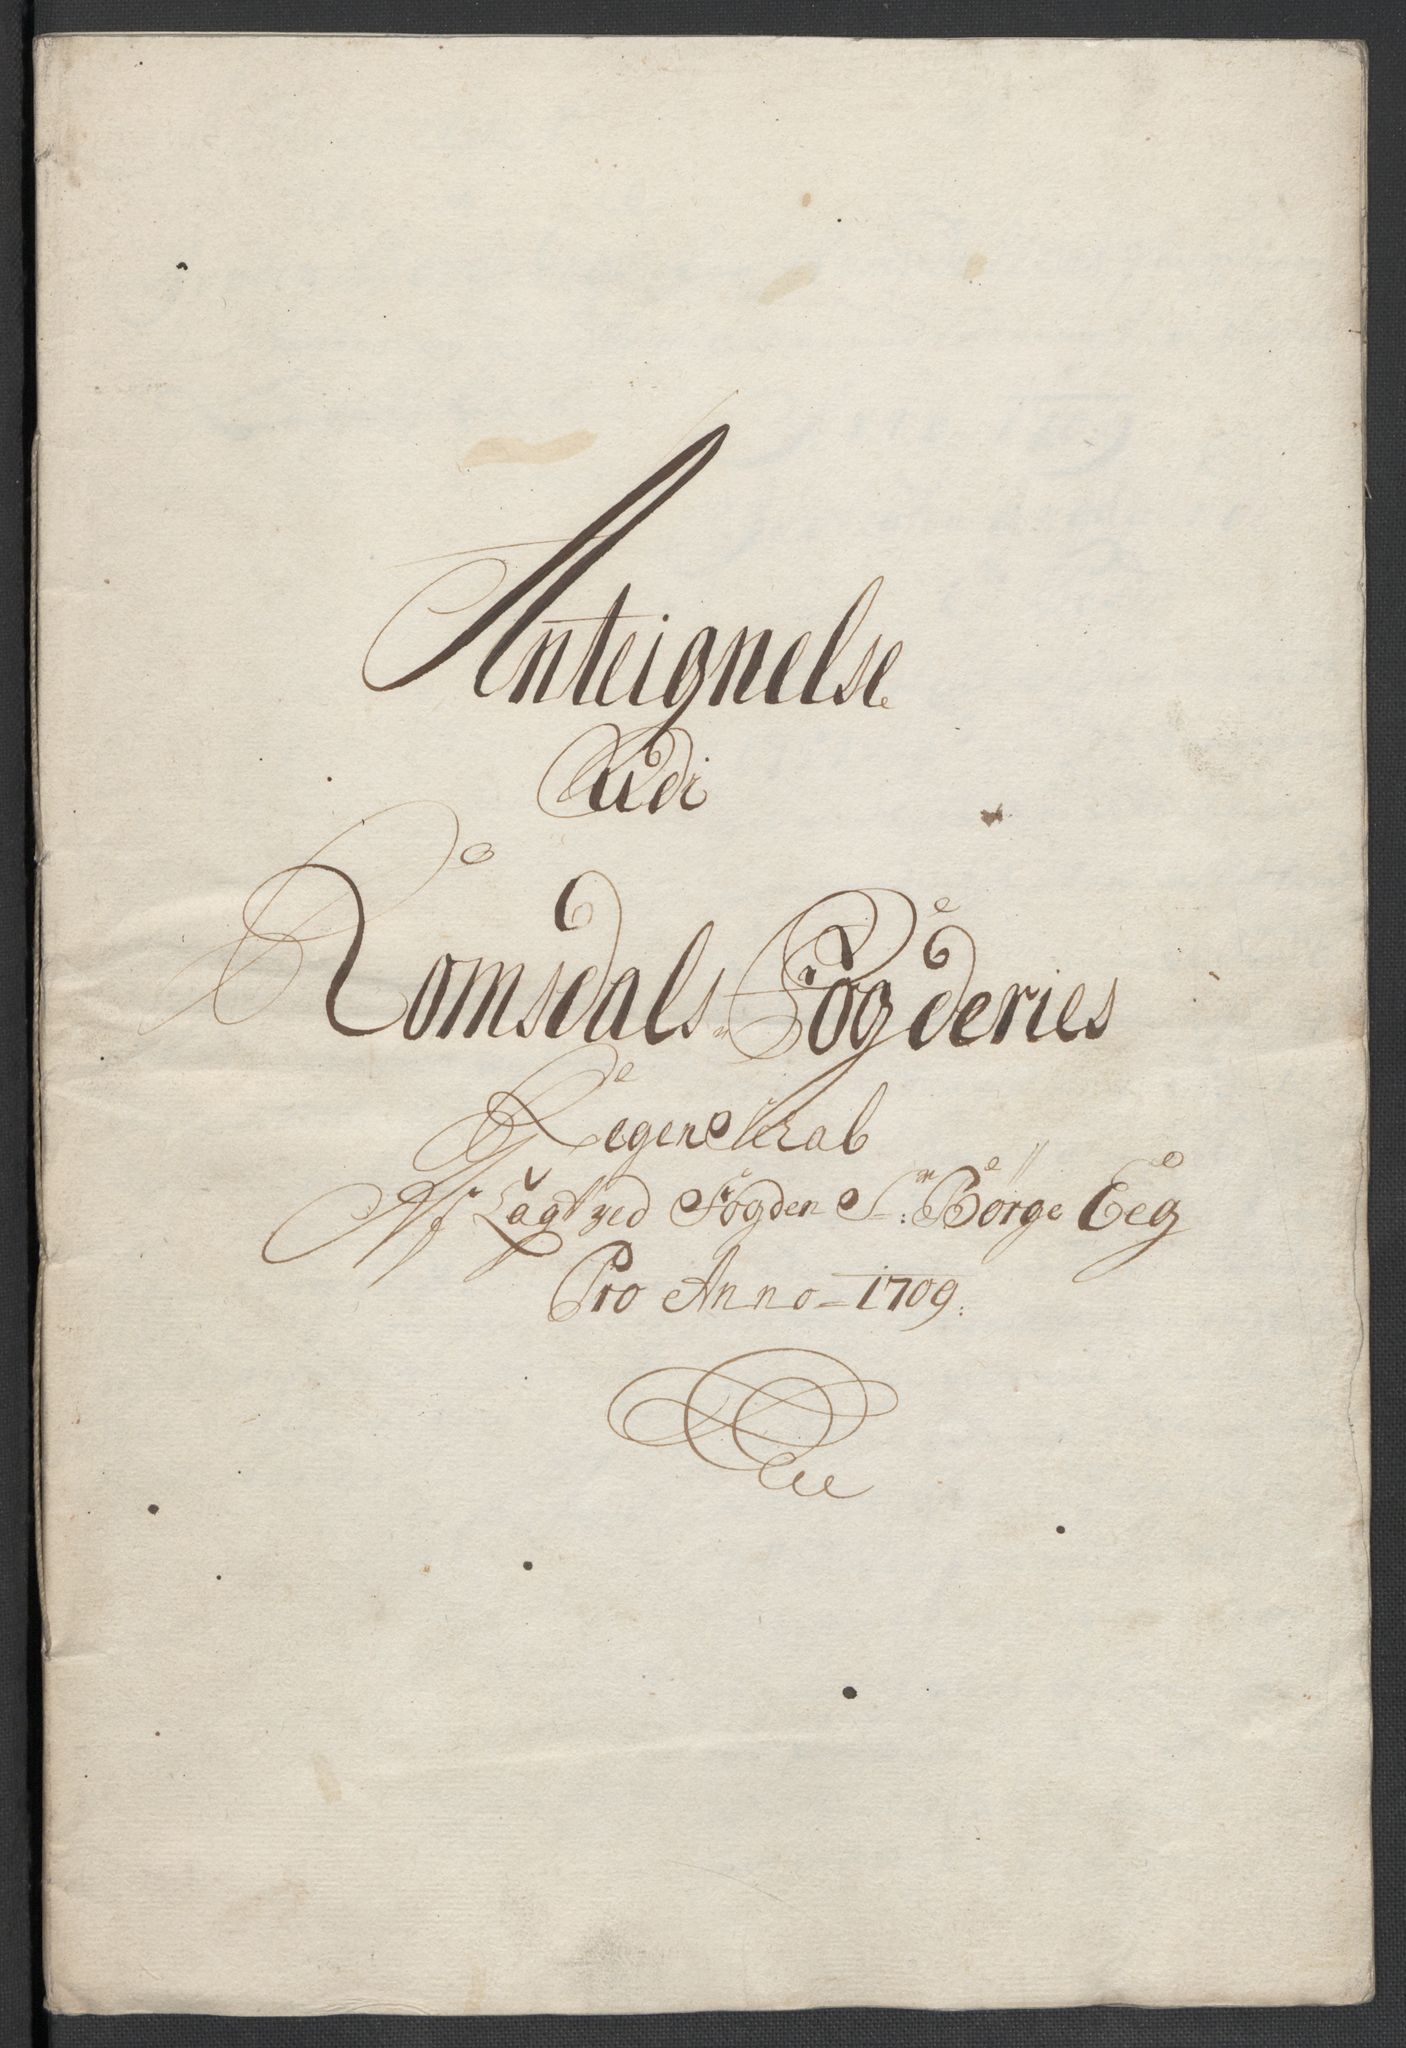 Anteignelse
Udi
Romsdals Fögderies
Regenskab
Aflagt ved Fögden Sr: Börge Eeg
Pro Anno 1709.